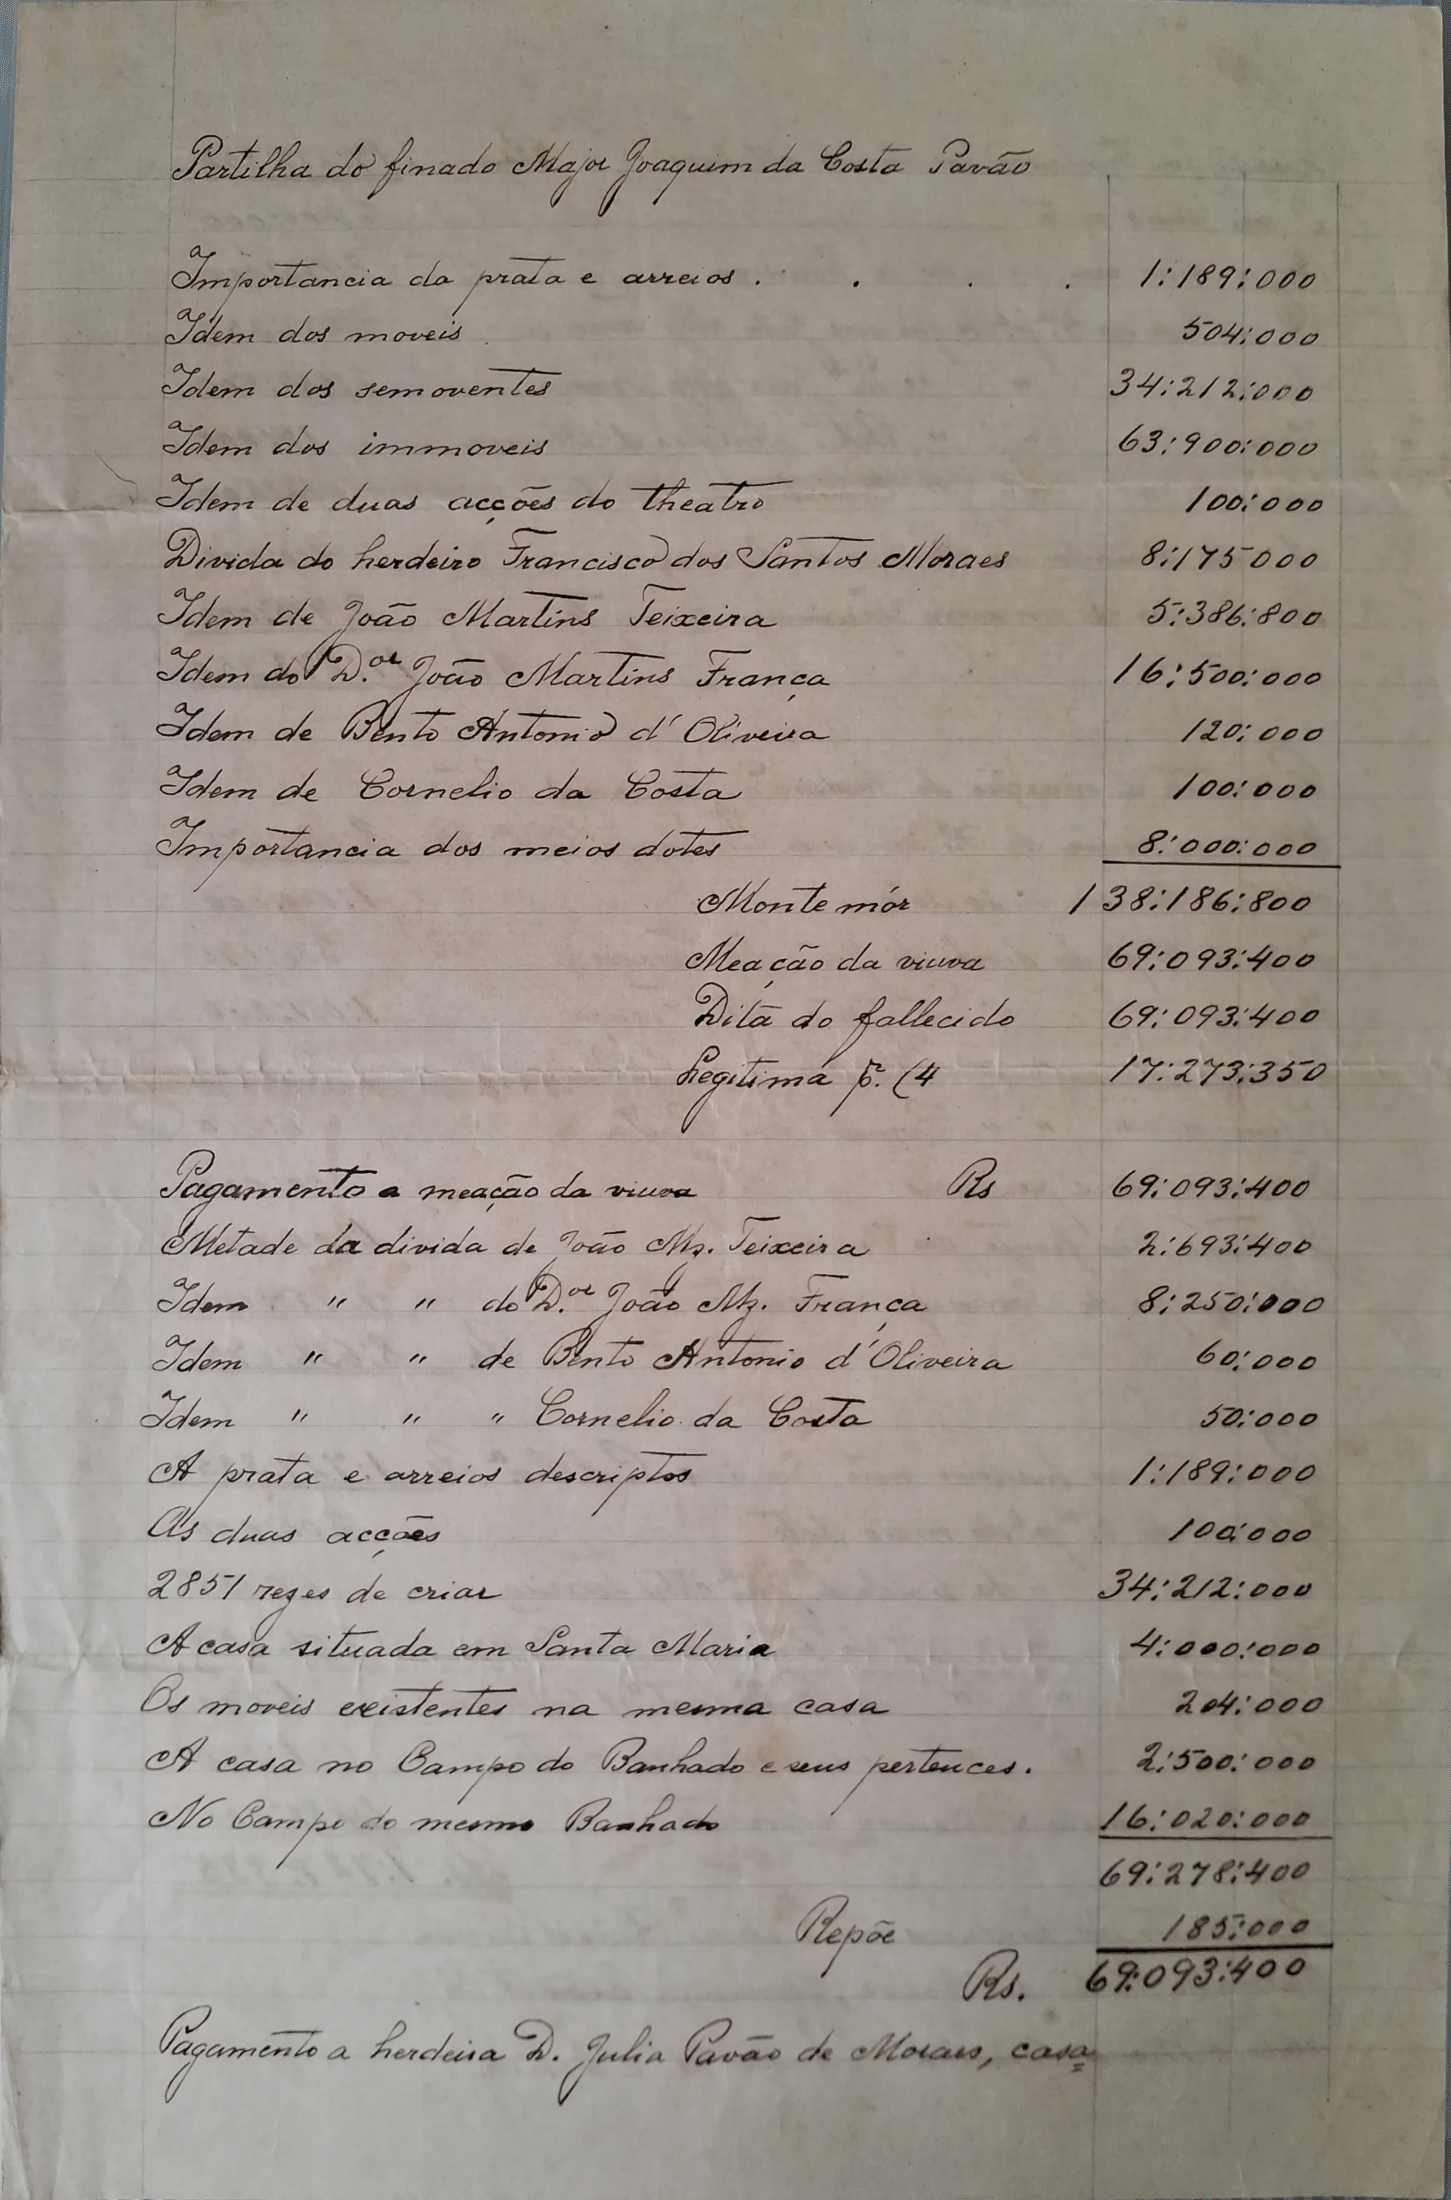 Partilha do finado Major Joaquim da Costa Pavão
Importancia da prata e arreios . . . . 1:189:000
Idem dos moveis 504:000
Idem dos semoventes 34:212:000
Idem dos immoveis 63:900:000
Idem de duas acções do theatro 100:000
Divida do herdeiro Francisco dos Santos Moraes 8:175000
Idem de João Martins Teixeira 5:386:800
Idem do D.or João Martins França 16:500:000
Idem de Bento Antonio d'Oliveira 120:000
Idem de Cornelio da Costa 100:000
Importancia dos meios dotes 8:000:000
Monte mór 138:186:800
Meação da viuva 69:093:400
Dita do fallecido 69:093:400
Legitima p.r (4 17:273:350
Pagamento a meação da viuva Rs 69:093:400
Metade da divida de João Mz. Teixeira 2:693:400
Idem " " do D.or João Mz. França 8:250:000
Idem " " de Bento Antonio d'Oliveira 60:000
Idem " " " Cornelio da Costa 50:000
A prata e arreios descriptos 1:189:000
As duas acções 100:000
2851 rezes de criar 34:212:000
A casa situada em Santa Maria 4:000:000
Os moveis existentes na mesma casa 204:000
A casa no Campo do Banhado e seus pertences. 2:500:000
No Campo do mesmo Banhado 16:020:000
69:278:400
Repõe 185:000
Rs. 69:093:400
Pagamento a herdeira D. Julia Pavão de Moraes, casa=